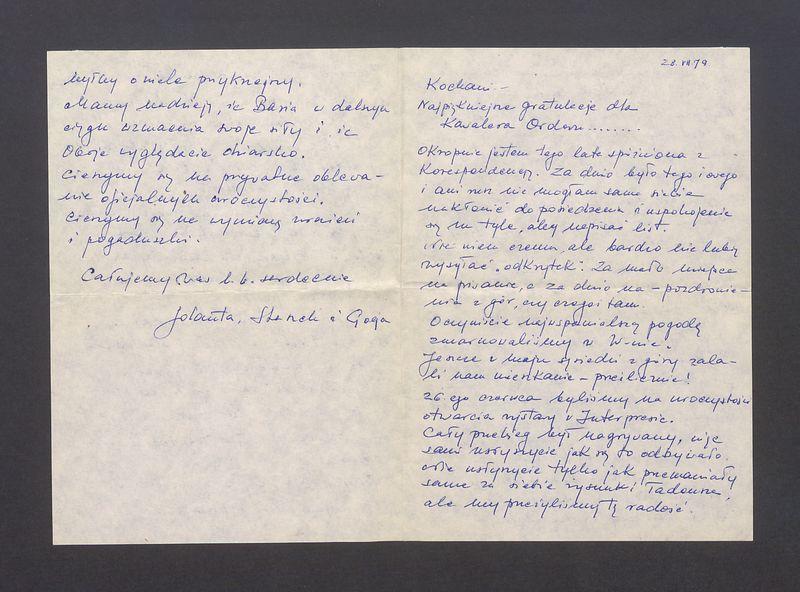 28.VII 79
Kochani –
Najpiękniejsze gratulacje dla
Kawalera Orderu........
Okropnie jestem tego lata spóźniona z
Korespondencją. Za dużo było tego i owego
i ani rusz nie mogłam sama siebie
nakłonić do posiedzenia i uspokojenia
się na tyle, aby napisać list.
Nie wiem czemu, ale bardzo nie lubię
wysyłać „odkrytek". Za mało miejsca
na pisanie, a za dużo na – pozdrowie-
nia z gór, czy czegoś tam.
Oczywiście najwspanialszą pogodę
zmarnowaliśmy w W-wie.
Jeszcze w maju sąsiedzi z góry zala-
li nam mieszkanie – prześlicznie!
26-ego czerwca byliśmy na uroczystości
otwarcia wystawy w Interpresie.
Cały przebieg był nagrywany, więc
sami usłyszycie jak się to odbywało.
Nie usłyszycie tylko jak przemawiały
same za siebie rysunki Tadeusza,
ale my przeżyliśmy tę radość.
byłby o wiele przyjemniejszy.
Mamy nadzieję, że Basia w dalszym
ciągu wzmacnia swoje siły i że
Oboje wyglądacie dziarsko.
Cieszymy się na prywatne oblewa-
nie oficjalnych uroczystości.
Cieszymy się na wymianę wrażeń
i pogaduszki.
Całujemy Was b. b. serdecznie
Jolanta, i Goga